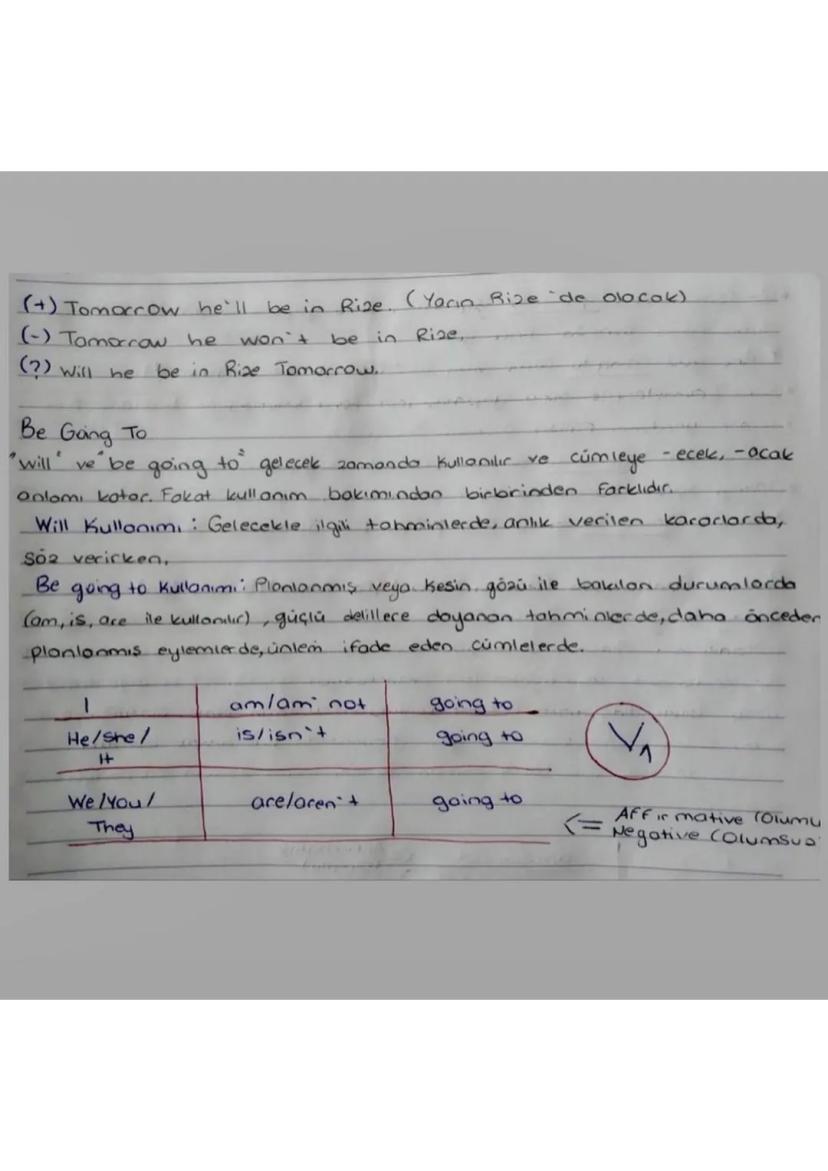 (+) Tomorrow he'll be in Rize. (Yarın Rize'de olacak)
(-) Tomorrow he won't be in Rize.
(?) Will he be in Rize Tomorrow.
Be Going To
"will" ve "be going to" gelecek zamanda kullanılır ve cümleye -ecek, -acak
anlamı katar. Fakat kullanım bakımından birbirinden farklıdır.
Will Kullanımı: Gelecekle ilgili tahminlerde, anlık verilen kararlarda,
söz verirken,
Be going to kullanımı: Planlanmış veya kesin gözü ile bakılan durumlarda
(am, is, are ile kullanılır), güçlü delillere dayanan tahminlerde, daha önceden
planlanmış eylemlerde, ünlem ifade eden cümlelerde.
I am/am not going to
He/She/ is/isn't going to
It
V1
We/You/ are/aren't going to
They
<= Affirmative (Olumu
Negative (Olumsuz